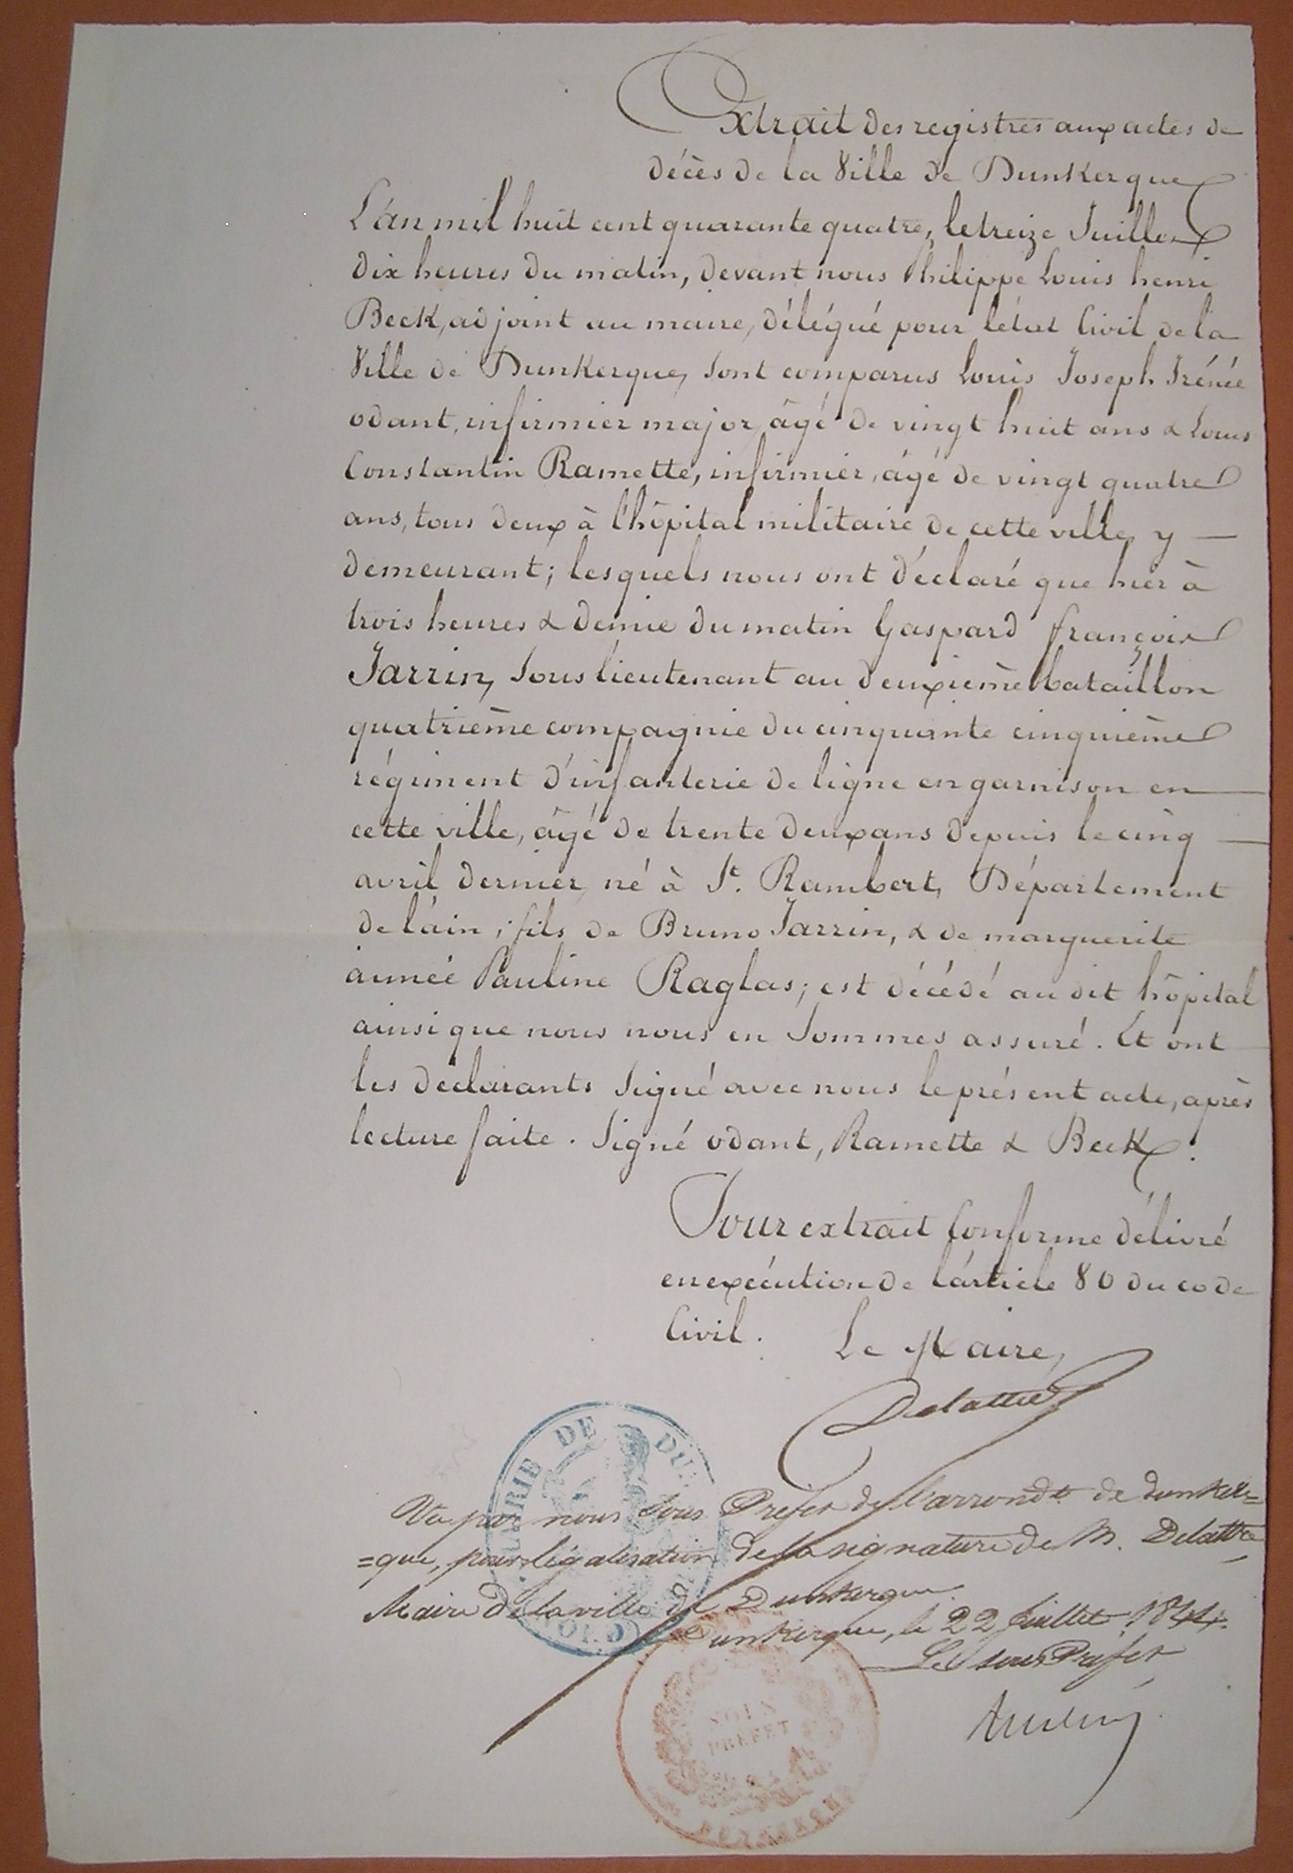 Extrait des registres aux actes de
décès de la Ville de Dunkerque
L'an mil huit cent quarante quatre, le treize Juillet
dix heures du matin, devant nous Philippe Louis henri
Beck, adjoint au maire, délégué pour l'état Civil de la
Ville de Dunkerque, sont comparus Louis Joseph Irénée
odant, infirmier major, âgé de vingt huit ans & Louis
Constantin Ramette, infirmier, âgé de vingt quatre
ans, tous deux à l'hôpital militaire de cette ville, y —
demeurant; lesquels nous ont déclaré que hier à
trois heures & demie du matin Gaspard françois
Jarrin, Sous lieutenant au deuxième bataillon
quatrième compagnie du cinquante cinquième
régiment d'infanterie de ligne en garnison en —
cette ville, âgé de trente deux ans depuis le cinq —
avril dernier, né à St. Rambert, Département
de l'ain; fils de Bruno Jarrin, & de marguerite
aimée Pauline Raglas; est décédé au dit hôpital
ainsi que nous nous en sommes assuré. Et ont
les déclarants signé avec nous le présent acte, après
lecture faite. Signé odant, Ramette & Beck.
Pour extrait Conforme délivré
en exécution de l'article 80 du code
Civil. Le Maire,
Delattre
MAIRIE DE DU
Vu par nous Sous Préfet de l'arrondt. de dunker=
=que, pour légalisation de la signature de M. Delattre
Maire de la ville de Dunkerque.
Dunkerque, le 22 Juillet 1844.
Le sous Préfet
SOUS
PREFET